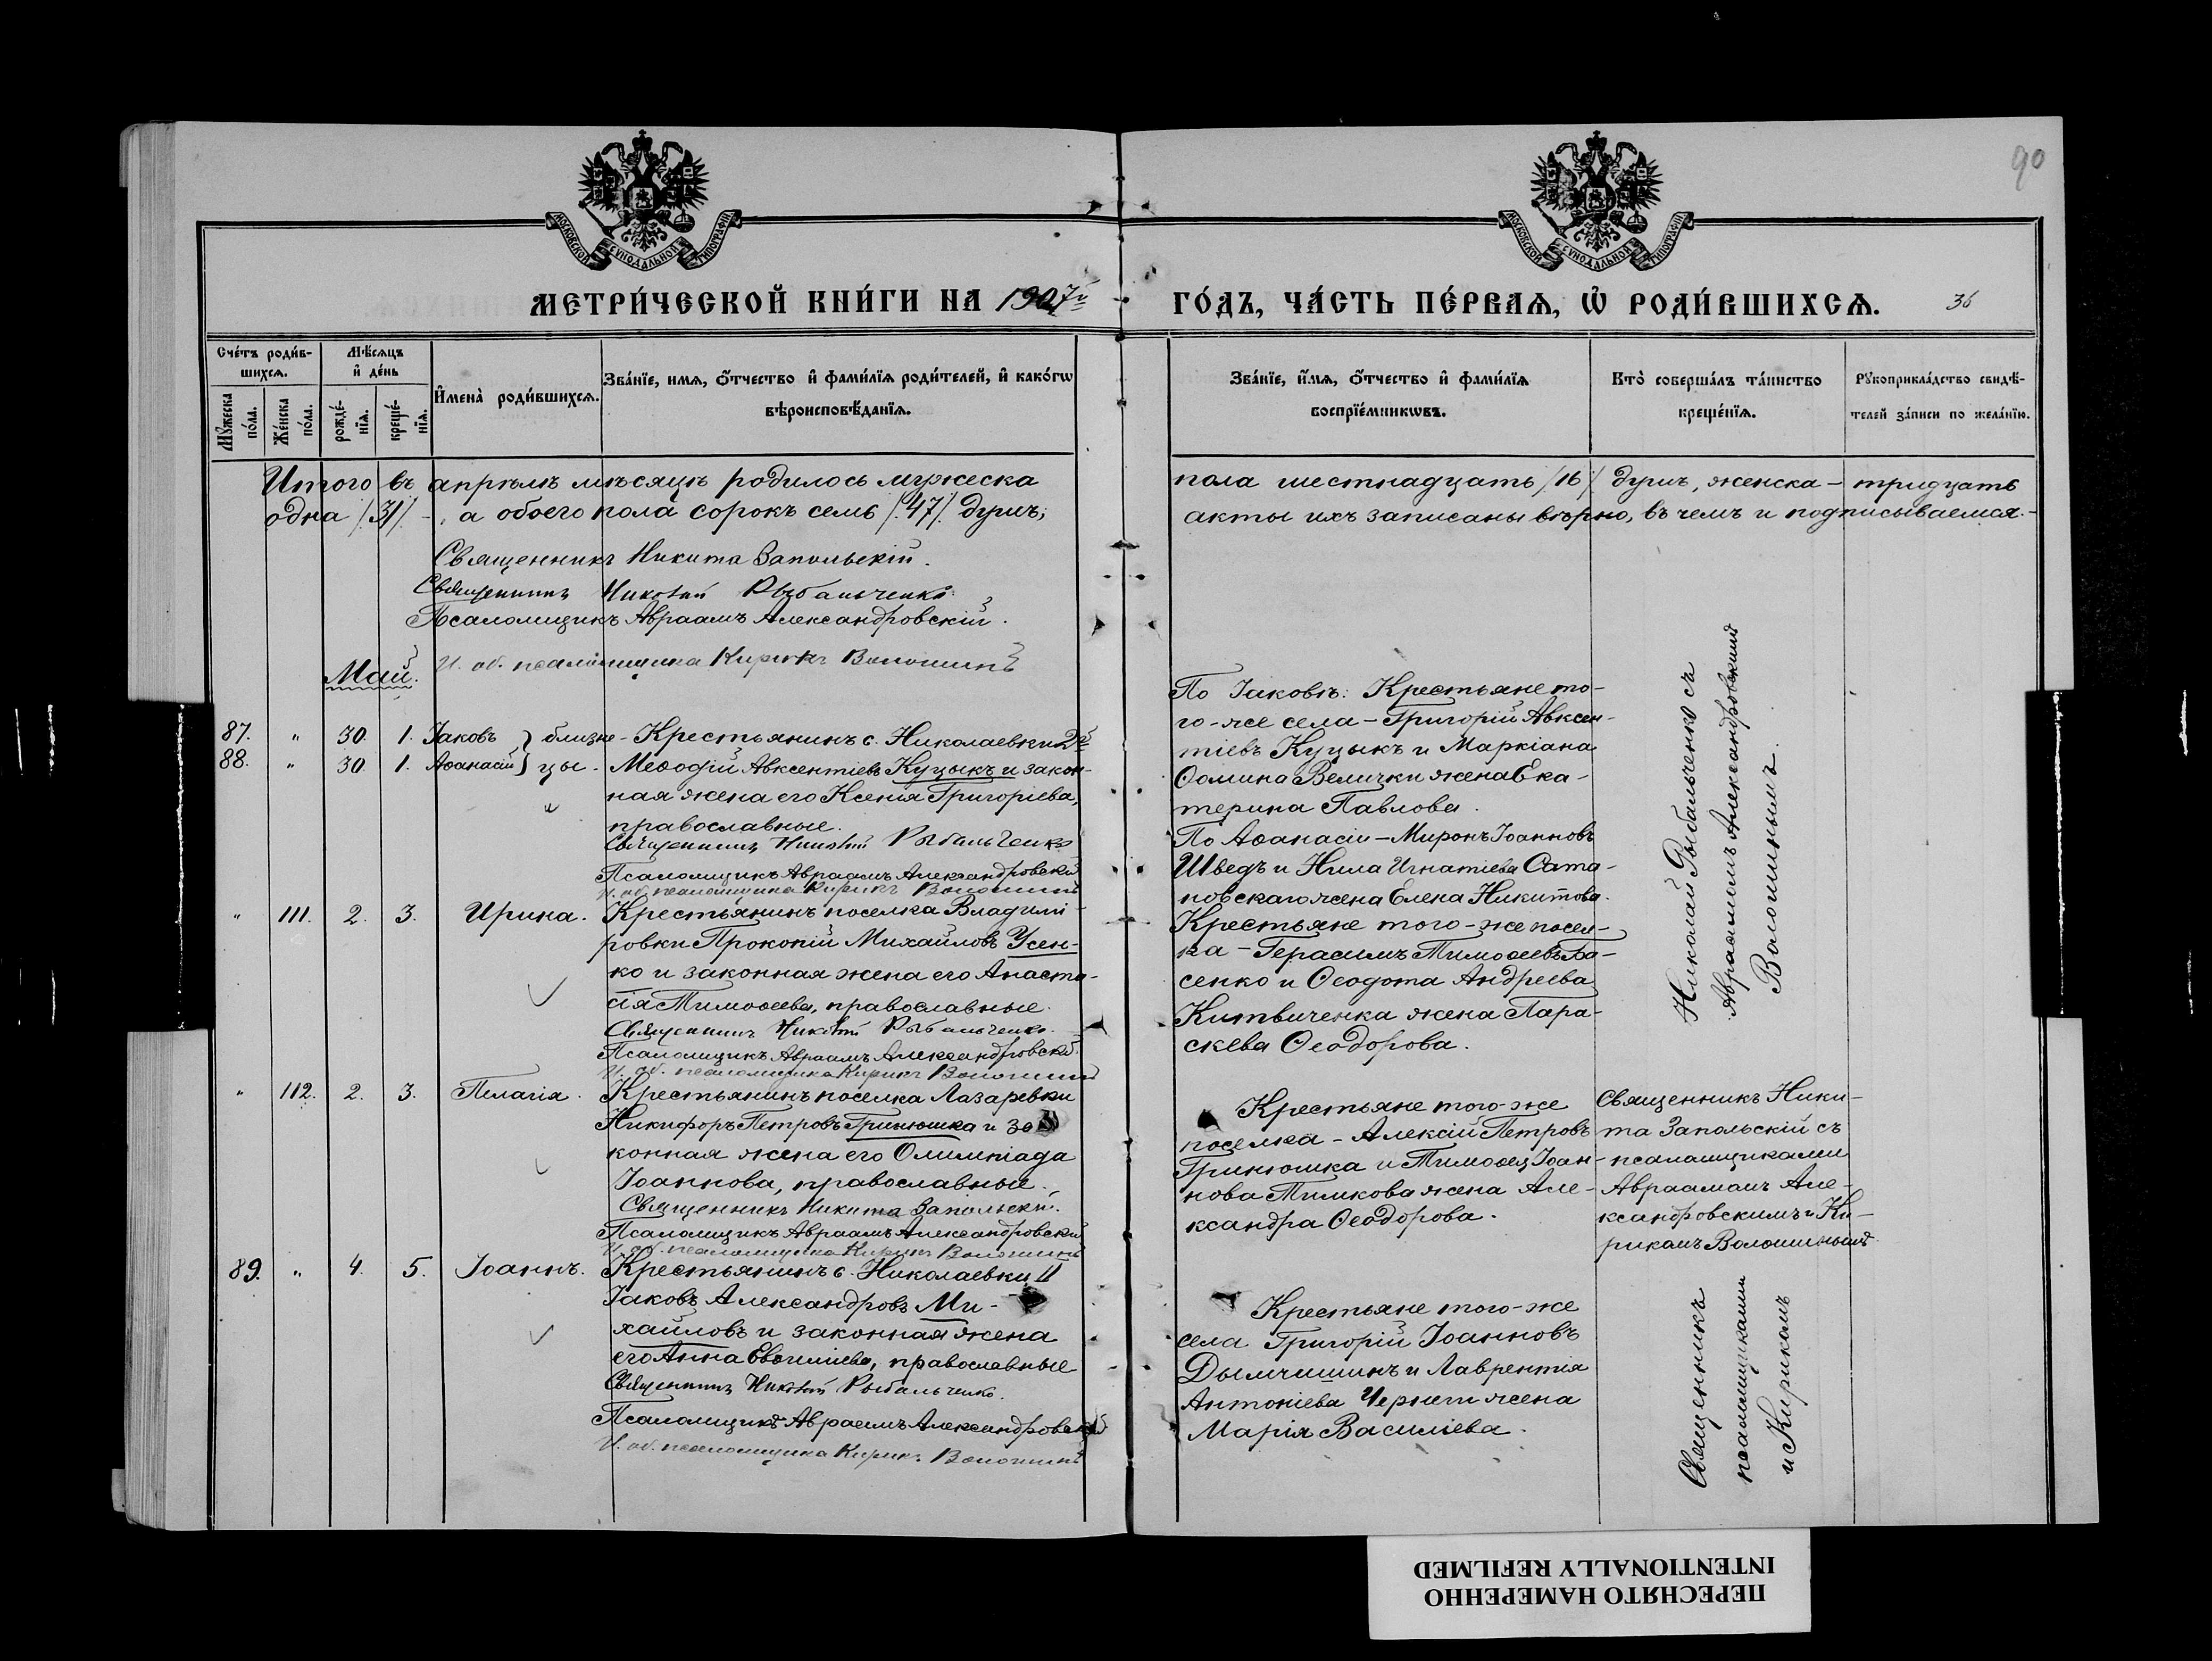 90
МОСКОВСКОЙ СѴНОДАЛЬНОЙ ТИПОГРАФІИ
МОСКОВСКОЙ СѴНОДАЛЬНОЙ ТИПОГРАФІИ
МЕТРИ́ЧЕСКОЙ КНИ́ГИ НА 1907й
ГО́ДЪ, ЧА́СТЬ ПЕ́РВАѦ, Ѡ҆ РОДИ́ВШИХСѦ. 36
Сче́тъ роди́в-
шихсѧ.
Мꙋ́жеска по́ла.
Же́нска по́ла.
Мѣ́сѧцъ
и҆ де́нь
рожде́-нїѧ.
креще́-нїѧ.
И҆мена̀ роди́вшихсѧ.
Зва́нїе, имѧ, ѻ҆́тчество и҆ фами́лїѧ роди́телей, и҆ како́гѡ
вѣроисповѣ́данїѧ.
Зва́нїе, и҆́мѧ, ѻ҆́тчество и҆ фами́лїѧ
воспрїе́мникѡвъ.
Кто̀ соверша́лъ та́инство
креще́нїѧ.
Рꙋкоприкла́дство свидѣ́-
телей за́писи по жела́нїю.
Итого въ апрѣлѣ мѣсяцѣ родилось мужеска
пола шестнадцать /16/ душъ, женска - тридцать
одна /31/ -, а обоего пола сорокъ семь /47/ душъ;
акты ихъ записаны вѣрно, въ чемъ и подписываемся.-
Священникъ Никита Запольскій.
Священникъ Николай Рыбальченко.
Псаломщикъ Авраамъ Александровскій.
И. об. псаломщика Кирикъ Волошинъ
Май.
87. " 30. 1. Іаковъ } близне-
88. " 30. 1. Аѳанасій } цы -
Крестьянинъ с. Николаевки 2й
Меѳодій Авксентіевъ Куцыкъ и закон-
ная жена его Ксенія Григоріева,
православные.
Священникъ Николай Рыбальченко
Псаломщикъ Авраамъ Александровскій
И. об. псаломщика Кирикъ Волошинъ
По Іаковѣ: Крестьяне то-
го-же села - Григорій Авксен-
тіевъ Куцыкъ и Маркіана
Ѳомина Велички жена Ека-
терина Павлова.
По Аѳанасіи - Миронъ Іоанновъ
Шведъ и Нила Игнатіева Сата-
новскаго жена Елена Никитова.
Николай Рыбальченко съ
Авраамомъ Александровскимъ
Волошинымъ.
" 111. 2. 3. Ирина.
Крестьянинъ поселка Владимі-
ровки Прокопій Михайловъ Усен-
ко и законная жена его Анаста-
сія Тимоѳеева, православные.
Священникъ Николай Рыбальченко.
Псаломщикъ Авраамъ Александровскій.
И. об. псаломщика Кирикъ Волошинъ
Крестьяне того-же посел-
ка - Герасимъ Тимоѳеевъ Ба-
сенко и Ѳеодота Андреева
Китвиченка жена Пара-
скева Ѳеодорова.
" 112. 2. 3. Пелагія.
Крестьянинъ поселка Лазаревки
Никифоръ Петровъ Гринюшка и за-
конная жена его Олимпіада
Іоаннова, православные.
Священникъ Никита Запольскій.
Псаломщикъ Авраамъ Александровскій
И. об. псаломщика Кирикъ Волошинъ
Крестьяне того-же
поселка - Алексій Петровъ
Гринюшка и Тимоѳея Іоан-
нова Тимкова жена Але-
ксандра Ѳеодорова.
Священникъ Ники-
та Запольскій съ
псаломщиками
Авраамомъ Але-
ксандровскимъ и Ки-
рикомъ Волошинымъ
89. " 4. 5. Іоаннъ.
Крестьянинъ с. Николаевки II
Іаковъ Александровъ Ми-
хайловъ и законная жена
его Анна Евѳиміева, православные
Священникъ Николай Рыбальченко.
Псаломщикъ Авраамъ Александровскій
И. об. псаломщика Кирикъ Волошинъ
Крестьяне того-же
села Григорій Іоанновъ
Дымчишинъ и Лаврентія
Антоніева Черноги жена
Марія Василіева.
Священникъ
псаломщиками
и Кирикомъ
ПЕРЕСНЯТО НАМЕРЕННО
INTENTIONALLY REFILMED